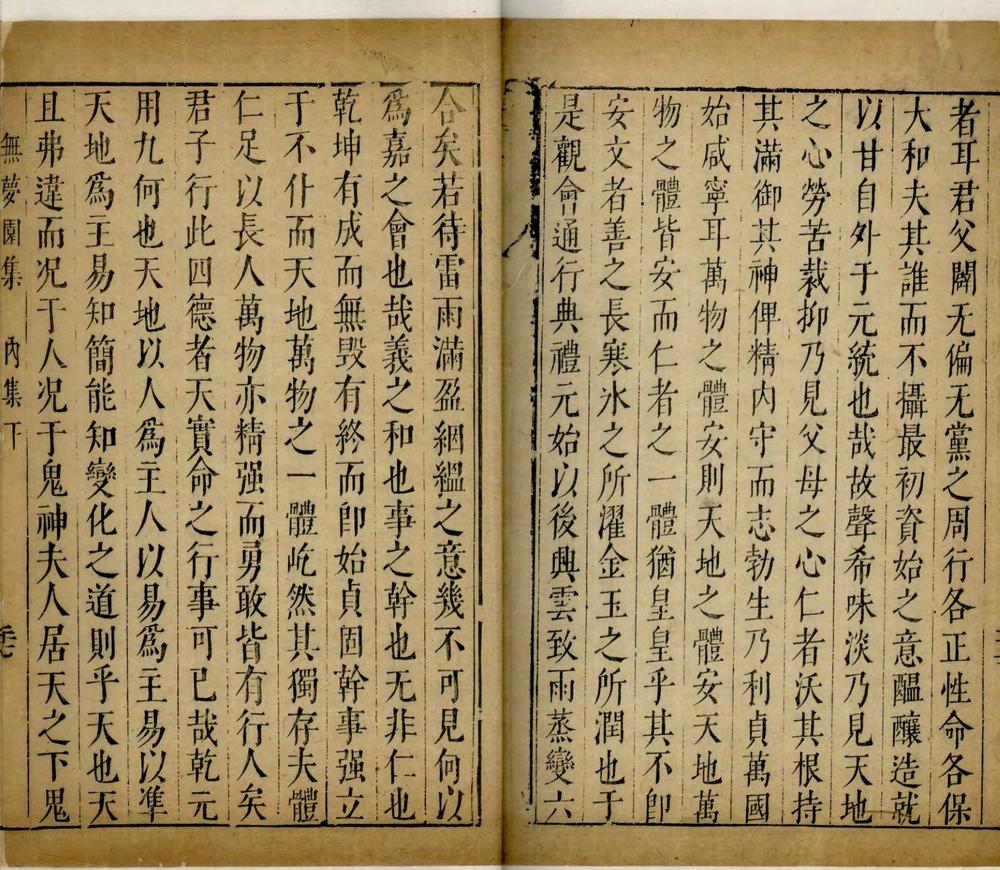 者耳君父闢无偏无黨之周行各正性命各保
大和夫其誰而不攝最初資始之意醖釀造就
以甘自外于元統也哉故聲希味淡乃見天地
之心勞苦裁抑乃見父母之心仁者沃其根持
其滿御其神俾精內守而志勃生乃利貞萬國
始咸寧耳萬物之體安則天地之體安天地萬
物之體皆安而仁者之一體猶皇皇乎其不卽
安文者善之長寒氷之所濯金玉之所潤也于
是觀會通行典禮元始以後興雲致雨蒸變六
合矣若待雷雨滿盈絪縕之意幾不可見何以
爲嘉之會也哉義之和也事之幹也无非仁也
乾坤有成而無毁有終而卽始貞固幹事强立
于不仆而天地萬物之一體屹然其獨存夫體
仁足以長人萬物亦精强而勇敢皆有行人矣
君子行此四德者天實命之行事可已哉乾元
用九何也天地以人爲主人以易爲主易以凖
天地爲主易知簡能知變化之道則乎天也天
且弗違而况于人况于鬼神夫人居天之下鬼
無夢園集 內集下